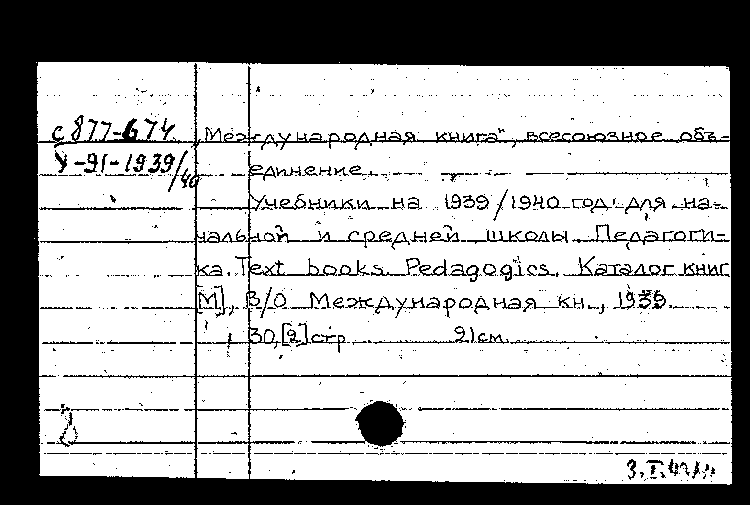 с 877-674 „Международная книга“, всесоюзное объ-
У-91-1939/40 единение.
Учебники на 1939/1940 год для на-
чальной и средней школы. Педагоги-
ка. Text books. Pedagogics. Каталог книг
[М], В/О Международная кн., 1939.
30,[2] стр. 21 см.
8